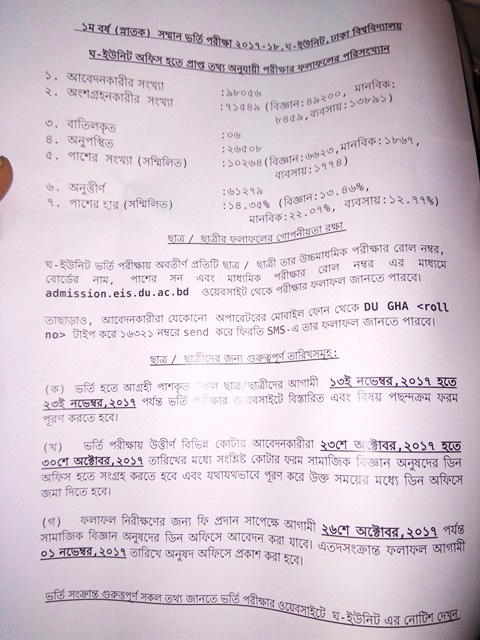 ১ম বর্ষ (স্নাতক) সম্মান ভর্তি পরীক্ষা ২০১৭-১৮,ঘ-ইউনিট,ঢাকা বিশ্ববিদ্যালয়
ঘ-ইউনিট অফিস হতে প্রাপ্ত তথ্য অনুযায়ী পরীক্ষার ফলাফলের পরিসংখ্যান
১. আবেদনকারীর সংখ্যা :৯৮০৫৬
২. অংশগ্রহনকারীর সংখ্যা :৭১৫৪৯ (বিজ্ঞান:৪৯২০০, মানবিক:
৮৪৫৯,ব্যবসায়:১৩৮৯১)
৩. বাতিলকৃত :০৬
৪. অনুপস্থিত :২৬৫০৮
৫. পাশের সংখ্যা (সম্মিলিত) :১০২৬৪(বিজ্ঞান:৬৬২৩,মানবিক:১৮৬৭,
ব্যবসায়:১৭৭৪)
৬. অনুত্তীর্ণ :৬১২৭৯
৭. পাশের হার (সম্মিলিত) :১৪.৩৫% (বিজ্ঞান:১৩.৪৬%,
মানবিক:২২.০৭%, ব্যবসায়:১২.৭৭%)
ছাত্র / ছাত্রীর ফলাফলের গোপনীয়তা রক্ষা
ঘ-ইউনিট ভর্তি পরীক্ষায় অবতীর্ণ প্রতিটি ছাত্র / ছাত্রী তার উচ্চমাধ্যমিক পরীক্ষার রোল নম্বর,
বোর্ডের নাম, পাশের সন এবং মাধ্যমিক পরীক্ষার রোল নম্বর এর মাধ্যমে
admission.eis.du.ac.bd ওয়েবসাইট থেকে পরীক্ষার ফলাফল জানতে পারবে।
তাছাড়াও, আবেদনকারীরা যেকোনো অপারেটরের মোবাইল ফোন থেকে DU GHA <roll
no> টাইপ করে ১৬৩২১ নম্বরে send করে ফিরতি SMS-এ তার ফলাফল জানতে পারবে।
ছাত্র / ছাত্রীদের জন্য গুরুত্বপূর্ণ তারিখসমূহ:
(ক) ভর্তি হতে আগ্রহী পাশকৃত সকল ছাত্র/ছাত্রীদের আগামী ১৩ই নভেম্বর,২০১৭ হতে
২৩ই নভেম্বর,২০১৭ পর্যন্ত ভর্তি পরীক্ষার ওয়েবসাইটে বিস্তারিত এবং বিষয় পছন্দক্রম ফরম
পূরণ করতে হবে।
(খ) ভর্তি পরীক্ষায় উত্তীর্ণ বিভিন্ন কোটায় আবেদনকারীরা ২৩শে অক্টোবর,২০১৭ হতে
৩০শে অক্টোবর,২০১৭ তারিখের মধ্যে সংশ্লিষ্ট কোটার ফরম সামাজিক বিজ্ঞান অনুষদের ডিন
অফিস হতে সংগ্রহ করতে হবে এবং যথাযথভাবে পূরণ করে উক্ত সময়ের মধ্যে ডিন অফিসে
জমা দিতে হবে।
(গ) ফলাফল নিরীক্ষণের জন্য ফি প্রদান সাপেক্ষে আগামী ২৬শে অক্টোবর,২০১৭ পর্যন্ত
সামাজিক বিজ্ঞান অনুষদের ডিন অফিসে আবেদন করা যাবে। এতদসংক্রান্ত ফলাফল আগামী
০১ নভেম্বর,২০১৭ তারিখে অনুষদ অফিসে প্রকাশ করা হবে।
ভর্তি সংক্রান্ত গুরুত্বপূর্ণ সকল তথ্য জানতে ভর্তি পরীক্ষার ওয়েবসাইটে ঘ-ইউনিট এর নোটিশ দেখুন